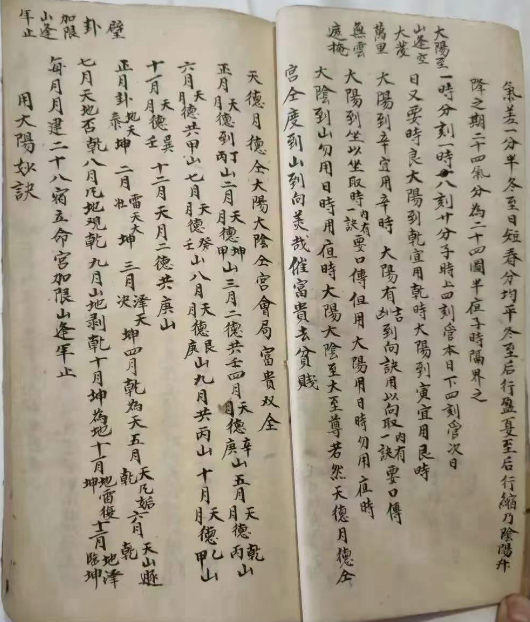 氣差一分半冬至日短春分均平冬至后行盈夏至后行縮乃陰陽升
降之期二十四氣分為二十四園半夜子時陽界之
一時分刻一時八刻廿分子時上四刻管本日下四刻管次日
太陽至山逢空亡
日又要時良太陽到乾宜用乾時太陽到寅宜用艮時
大發
太陽到辛宜用辛時 太陽有吉凶到向訣用以向取一訣內有要口傳
萬里無雲
太陽到坐以坐取時一訣內有要口傳但用太陽用日時勿用夜時
遮掩
太陰到山勿用日時用夜時太陽太陰至大至尊若然天德月德仝
宮仝度到山到向美哉催富貴去貧賤
天德月德仝太陽太陰仝宮會局富貴双全
正月天德到丁山月德丙山二月天德坤月德甲山三月二德共壬四月天德辛山月德庚五月天德乾山月德丙山
六月天德共甲山七月天德癸月德壬山八月天德艮月德庚山九月共丙山十月天德乙山月德甲山
十一月天德巽月德壬 十二月天月二德共庚山
正月卦地天泰坤 二月雷天大壯坤 三月澤天夬坤四月乾為天五月天風姤乾六月天山遯乾
七月天地否乾八月風地觀乾九月山地剥乾十月坤為地十一月地雷復坤十二月地澤臨坤
每月月建二十八宿五命宮加限山逢牢止
用太陽妙訣
壁卦加限山逢牢止